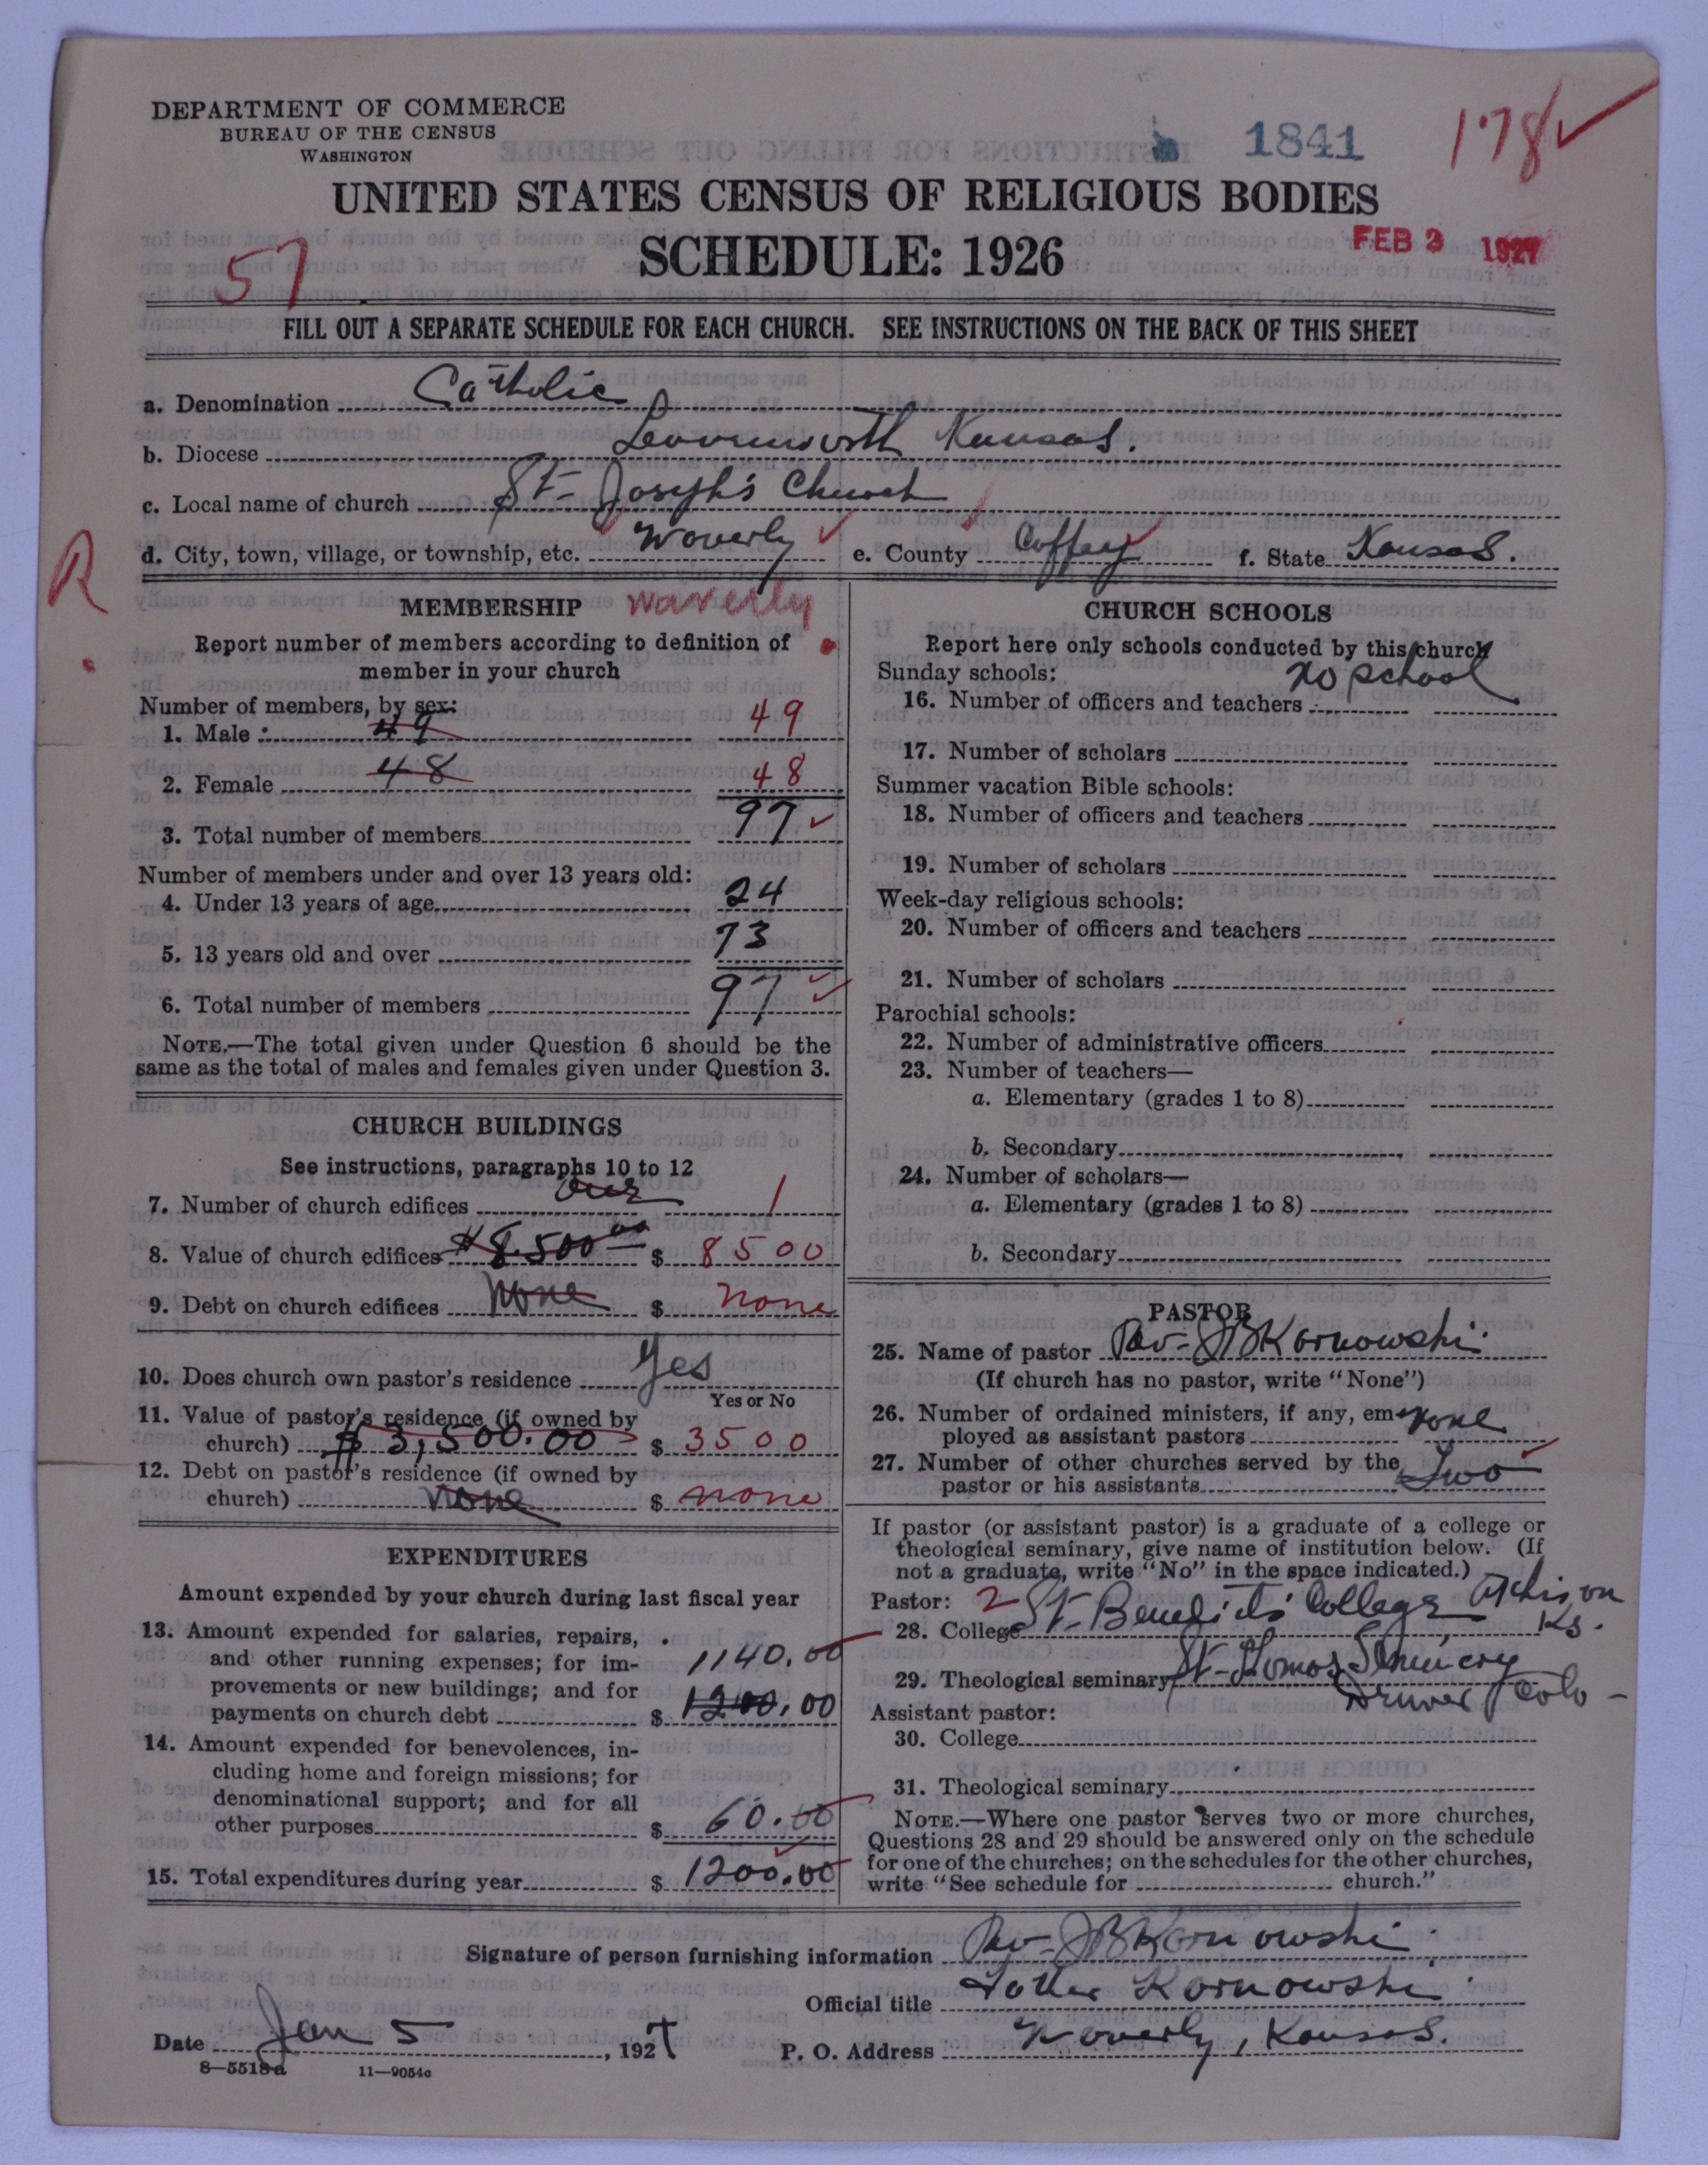 DEPARTMENT OF COMMERCE
BUREAU OF THE CENSUS
WASHINGTON
1841
178
UNITED STATES CENSUS OF RELIGIOUS BODIES
SCHEDULE: 1926
FEB 3 1927
57
FILL OUT A SEPARATE SCHEDULE FOR EACH CHURCH. SEE INSTRUCTIONS ON THE BACK OF THIS SHEET
a. Denomination Catholic
b. Diocese Leavenworth Kansas.
c. Local name of church St- Joseph's Church
d. City, town, village, or township, etc. Waverly e. County Coffey f. State Kansas.
R
MEMBERSHIP Waverly
Report number of members according to definition of
member in your church
Number of members, by sex:
1. Male 49 49
2. Female 48 48
3. Total number of members 97
Number of members under and over 13 years old:
4. Under 13 years of age 24
5. 13 years old and over 73
6. Total number of members 97
NOTE.—The total given under Question 6 should be the
same as the total of males and females given under Question 3.
CHURCH BUILDINGS
See instructions, paragraphs 10 to 12
7. Number of church edifices one 1
8. Value of church edifices $8.500 00 $ 8500
9. Debt on church edifices None $ none
10. Does church own pastor's residence Yes
Yes or No
11. Value of pastor's residence (if owned by
church) $ 3,500.00 $ 3500
12. Debt on pastor's residence (if owned by
church) None $ none
EXPENDITURES
Amount expended by your church during last fiscal year
13. Amount expended for salaries, repairs,
and other running expenses; for im- 1140.00
provements or new buildings; and for
payments on church debt $ 1200.00
14. Amount expended for benevolences, in-
cluding home and foreign missions; for
denominational support; and for all
other purposes $ 60.00
15. Total expenditures during year $ 1200.00
CHURCH SCHOOLS
Report here only schools conducted by this church
Sunday schools: no school
16. Number of officers and teachers
17. Number of scholars
Summer vacation Bible schools:
18. Number of officers and teachers
19. Number of scholars
Week-day religious schools:
20. Number of officers and teachers
21. Number of scholars
Parochial schools:
22. Number of administrative officers
23. Number of teachers—
a. Elementary (grades 1 to 8)
b. Secondary
24. Number of scholars—
a. Elementary (grades 1 to 8)
b. Secondary
PASTOR
25. Name of pastor Rev- JB Kornowski.
(If church has no pastor, write "None")
26. Number of ordained ministers, if any, em-
ployed as assistant pastors none
27. Number of other churches served by the
pastor or his assistants Two
If pastor (or assistant pastor) is a graduate of a college or
theological seminary, give name of institution below. (If
not a graduate, write "No" in the space indicated.)
Pastor: 2
28. College St- Benedicts College Atchison Ks.
29. Theological seminary St- Thomas Seminery
Denver Colo-
Assistant pastor:
30. College
31. Theological seminary
NOTE.—Where one pastor serves two or more churches,
Questions 28 and 29 should be answered only on the schedule
for one of the churches; on the schedules for the other churches,
write "See schedule for church."
Signature of person furnishing information Rev- JB Kornowski
Official title Father Kornowski.
Date Jan 5, 1927 P. O. Address Waverly, Kansas.
8—5518a 11—9054c